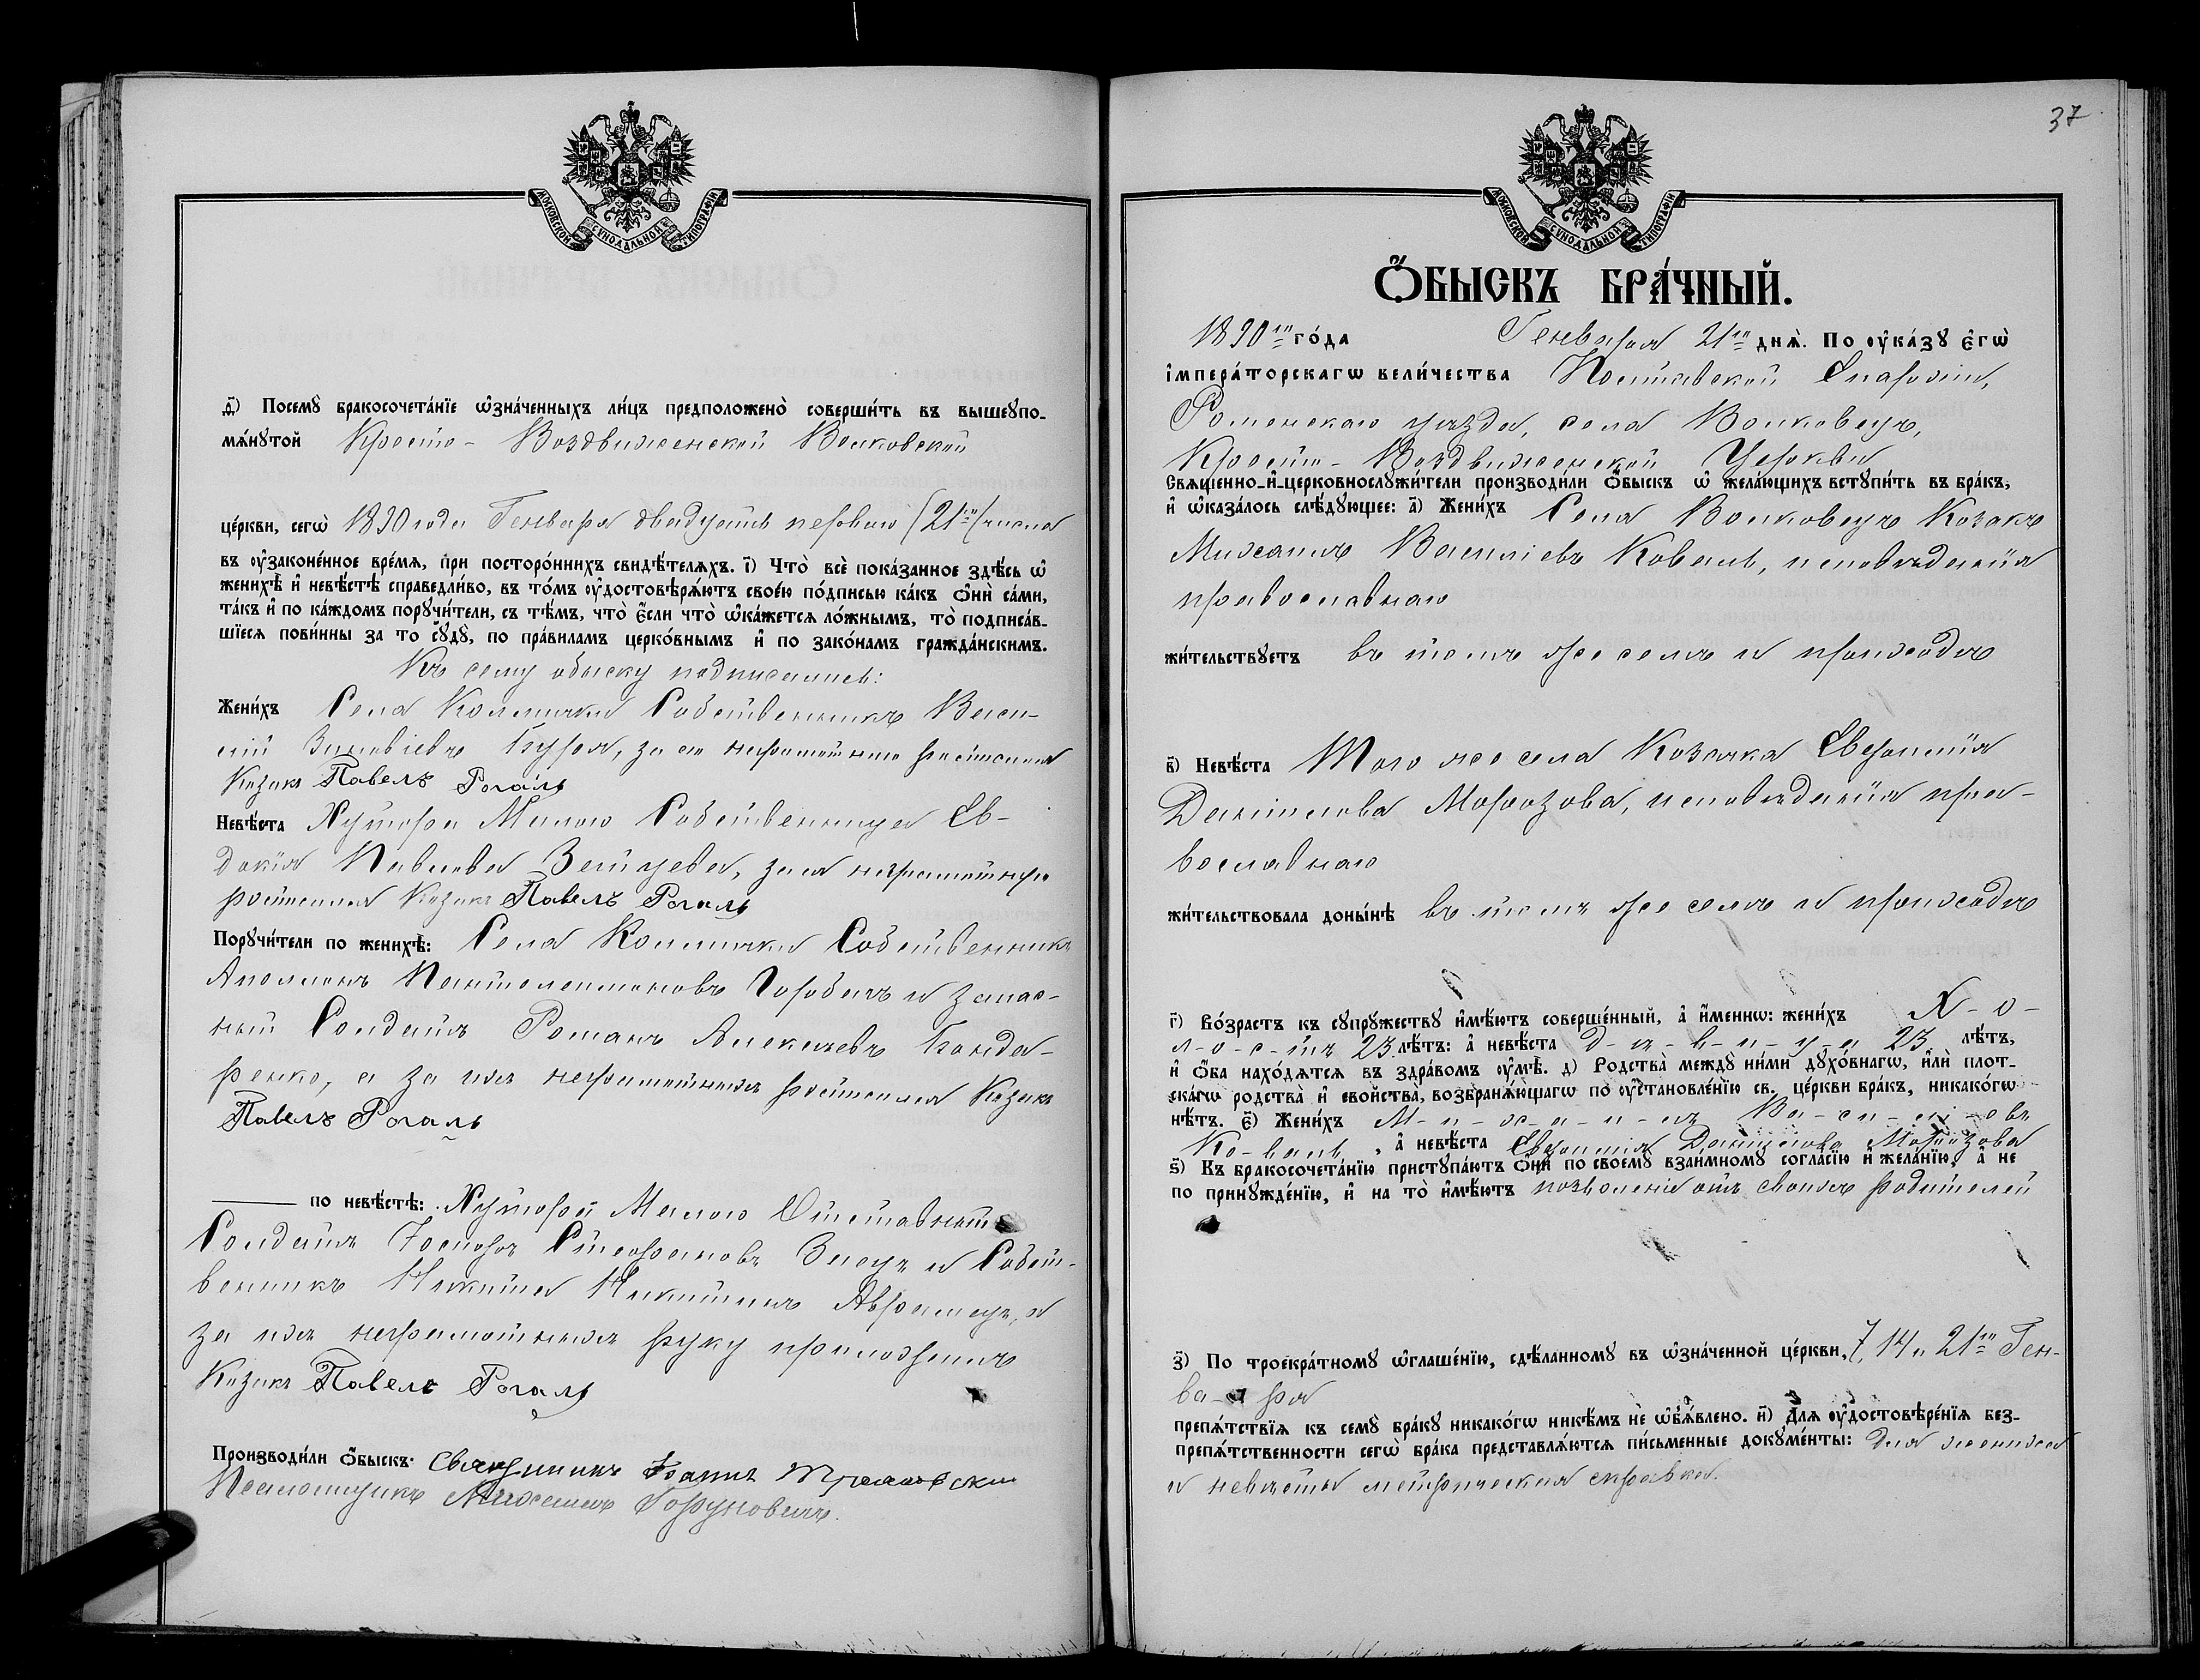 МОСКОВСКОЙ СѴНОДАЛЬНОЙ ТИПОГРАФІИ
д҃і) Посемꙋ̀ бракосочета́нїе ѡ҆зна́ченныхъ ли́цъ предположено̀ соверши́ть въ вышеꙋпо-
мѧ́нꙋтой Кресто-Воздвиженской Волковской
це́ркви, сегѡ̀ 1890 года Генваря двадцать первого (21го) числа
въ ᲂу҆законе́нное вре́мѧ, при посторо́ннихъ свидѣ́телѧхъ. і҃) Что̀ всѐ пока́занное здѣ́сь ѡ҆
женихѣ̀ и҆ невѣ́стѣ справедли́во, въ то́мъ ᲂу҆достовѣрѧ́ютъ свое́ю по́дписью ка́къ ѻ҆нѝ са́ми,
та́къ и҆ по ка́ждомъ порꙋчи́тели, съ тѣ́мъ, что̀ є҆́сли что̀ ѡ҆ка́жетсѧ ло́жнымъ, то̀ подписа́в-
шїесѧ пови́нны за то сꙋдꙋ̀, по пра́виламъ церко́внымъ и҆ по зако́намъ гражда́нскимъ.
Къ сему обыску подписались:
Жени́хъ Села Коллички Собственникъ Васи-
лій Зиновіевъ Буря, за его неграмотнаго росписался
Козакъ Павелъ Рогаль
Невѣ́ста Хутора Малого Собственница Ев-
докія Павлова Зейцева, за ея неграмотную
росписался Козакъ Павелъ Рогаль
Порꙋчи́тели по женихѣ̀: Села Коллички Собственникъ
Аполлонъ Пантелеимоновъ Горобецъ и запас-
ный Солдатъ Романъ Алексѣевъ Бонда-
ренко, а за ихъ неграмотныхъ росписался Козакъ
Павелъ Рогаль
по невѣ́стѣ: Хутора Малого Отставный
Солдатъ Стефановъ и Собст-
венникъ Никита Никитинъ Аврамецъ, а
за ихъ неграмотныхъ руку приложилъ
Козакъ Павелъ Рогаль
Производи́ли ѻ҆́быскъ: Священникъ Іоаннъ
Псаломщикъ Михаилъ
37
МОСКОВСКОЙ СѴНОДАЛЬНОЙ ТИПОГРАФІИ
Ѻ҆́БЫСКЪ БРА́ЧНЫЙ.
1890го го́да Генваря 21го днѧ̀. По ᲂу҆ка́зꙋ є҆гѡ̀
і҆мпера́торскагѡ вели́чества Полтавской Епархіи,
Роменскаго уѣзда, села Волковецъ,
Кресто-Воздвиженской Церкви
Свѧщенно-и҆-церковнослꙋжи́тели производи́ли ѻ҆́быскъ ѡ҆ жела́ющихъ встꙋпи́ть въ бра́къ,
и҆ ѡ҆каза́лось слѣ́дꙋющее: а҃) Жени́хъ Села Волковецъ Козакъ
Михаилъ Василіевъ Коваль, исповѣданія
православнаго
жи́тельствꙋетъ въ томъ же селѣ и приходѣ
в҃) Невѣ́ста Того же села Козачка Евфимія
Даніилова Морозова, исповѣданія пра-
вославнаго
жи́тельствовала доны́нѣ въ томъ же селѣ и приходѣ
г҃) Во́зрастъ къ сꙋпрꙋ́жествꙋ и҆мѣ́ютъ соверше́нный, а҆ и҆́меннѡ: жени́хъ Х-о-
л-о-с-тъ 23 лѣ́тъ: а҆ невѣ́ста д-ѣ-в-и-ц-а 23 лѣ́тъ,
и҆ ѻ҆́ба нахо́дѧтсѧ въ здра́вомъ ᲂу҆мѣ̀. д҃) Родства̀ междꙋ̀ ни́ми дꙋхо́внагѡ, и҆лѝ плот-
ска́гѡ родства̀ и҆ свойства̀, возбранѧ́ющагѡ по ᲂу҆становле́нїю св. це́ркви бра́къ, никако́гѡ
нѣ́тъ. є҃) Жени́хъ М-и-х-а-и-лъ Ва-си-лі-евъ
Ко-валь, а҆ невѣ́ста Евфимія Даніилова Морозова
ѕ҃) Къ бракосочета́нїю пристꙋпа́ютъ ѻ҆нѝ по своемꙋ̀ взаи́мномꙋ согла́сїю и҆ жела́нїю, а҆ не
по принꙋжде́нїю, и҆ на то̀ и҆мѣ́ютъ позволеніе отъ своихъ родителей
з҃) По троекра́тномꙋ ѡ҆глаше́нїю, сдѣ́ланномꙋ въ ѡ҆зна́ченной це́ркви, 7, 14 и 21го Ген-
ва-ря
препѧ́тствїѧ къ семꙋ̀ бра́кꙋ никако́гѡ никѣ́мъ нѐ ѡ҆б̾ѧ́влено. и҃) Длѧ ᲂу҆достовѣре́нїѧ без-
препѧ́тственности сегѡ̀ бра́ка представлѧ́ютсѧ пи́сьменные докꙋме́нты: для жениха
и невѣсты метрическая справка.